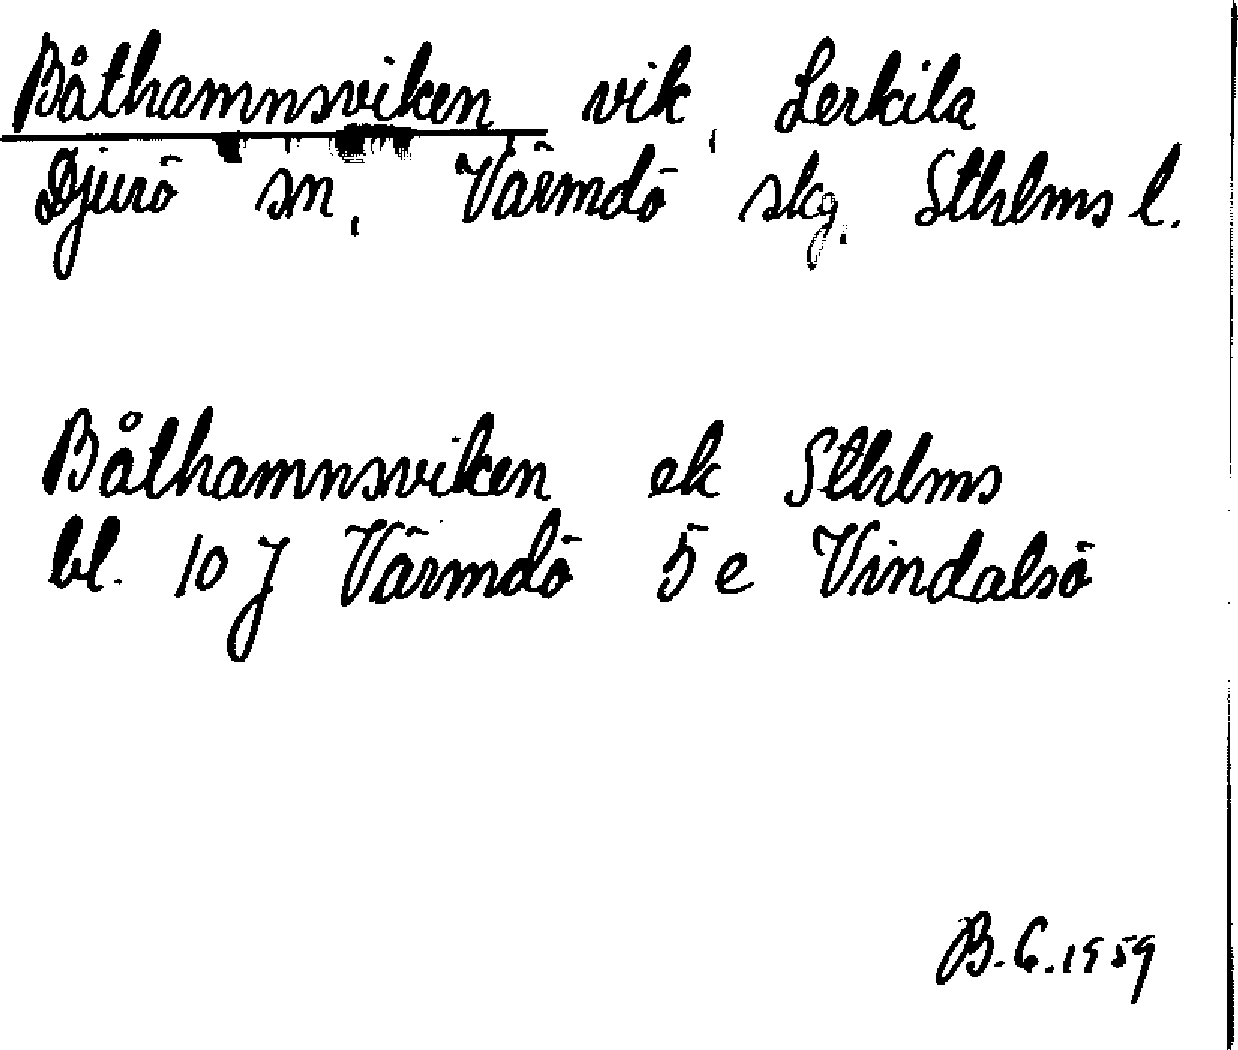 Båthamnsviken, vik, Lerkila
Djurö sn, Värmdö skg, Sthlms l.
Båthamnsviken ek Sthlms
bl. 10 J Värmdö 5 e Vindalsö
B.G. 1959